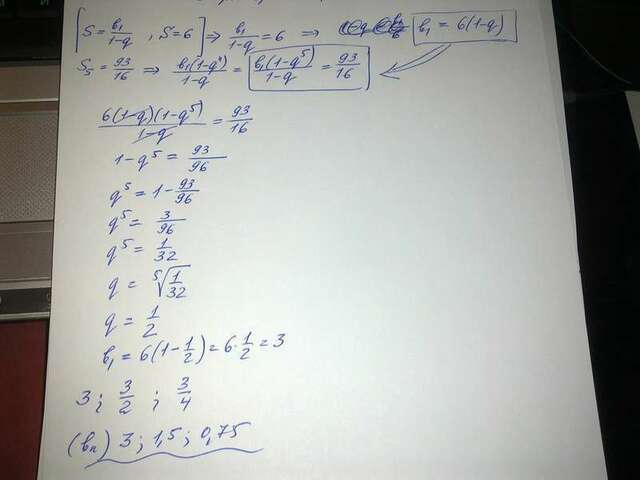 [S = b₁/(1-q), S = 6] ⇒ b₁/(1-q) = 6 ⇒ b₁ = 6(1-q)
S₅ = 93/16 ⇒ b₁(1-qⁿ)/(1-q) = b₁(1-q⁵)/(1-q) = 93/16
6(1-q)(1-q⁵)/(1-q) = 93/16
1-q⁵ = 93/96
q⁵ = 1-93/96
q⁵ = 3/96
q⁵ = 1/32
q = ⁵√(1/32)
q = 1/2
b₁ = 6(1-1/2) = 6·1/2 = 3
3; 3/2; 3/4
(bₙ) 3; 1,5; 0,75